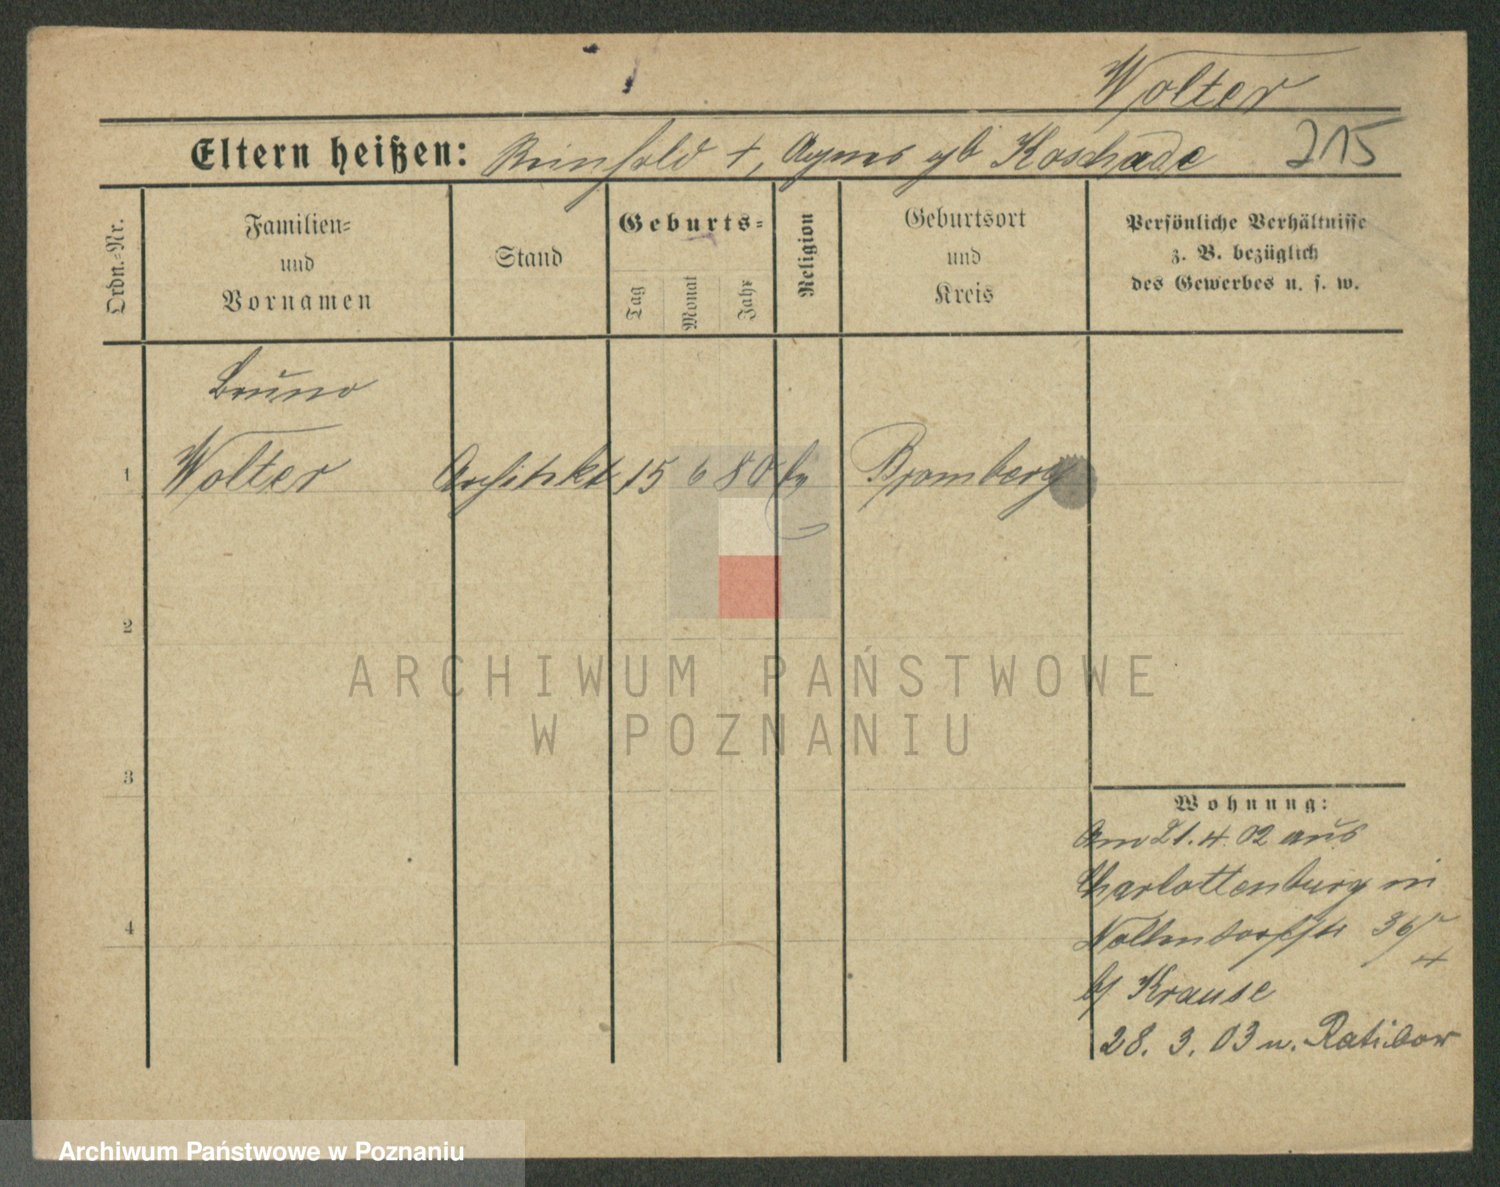 Wolter
Eltern heißen: Reinhold +, Agnes gb Koschade 215
Ordn.-Nr.
Familien-
und
Vornamen
Stand
Geburts-
Tag
Monat
Jahr
Religion
Geburtsort
und
Kreis
Persönliche Verhältnisse
z. B. bezüglich
des Gewerbes u. s. w.
Bruno
1 Wolter Architekt 15 6 80 Bromberg
2
ARCHIWUM PAŃSTWOWE
W POZNANIU
3
Wohnung:
Am 21. 4. 02 aus
Charlottenburg in
4
Nollendorfstr 36/
4
bj Krause
28. 3. 03 n. Ratibor
Archiwum Państwowe w Poznaniu